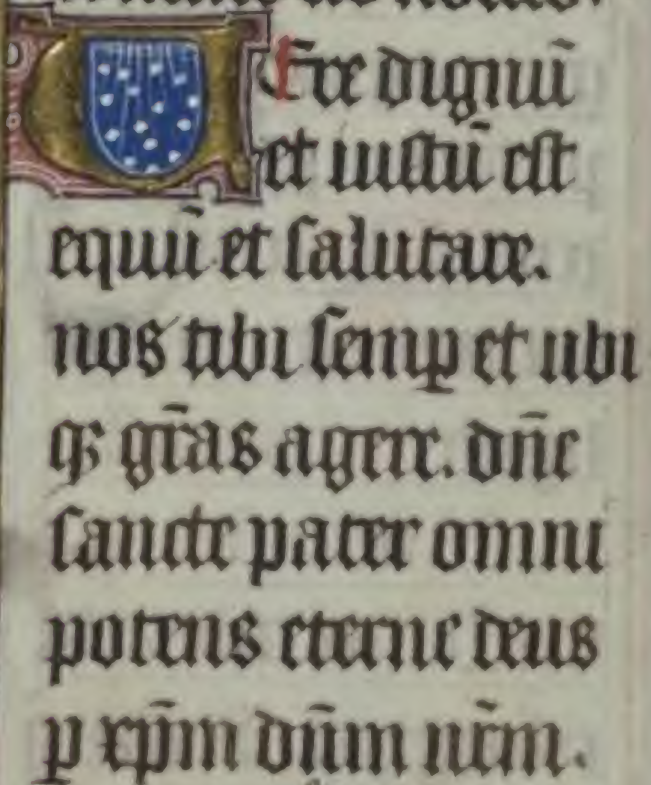 VEre dignū
et iustū est
equū et salutare.
nos tibi semꝑ et ubi
qꝫ gr̄as agere. dn̄e
sancte pater omni
potens eterne deus
ꝑ xp̄m dn̄m nr̄m.